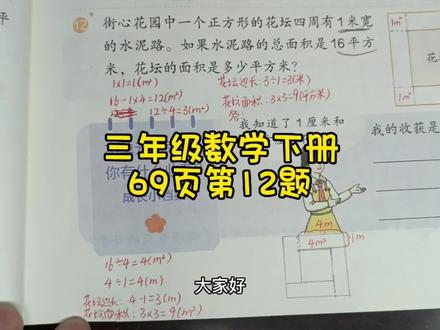 12 街心花园中一个正方形的花坛四周有1米宽
的水泥路。如果水泥路的总面积是16平方
米，花坛的面积是多少平方米？
1×1=1(m²)
16-1×4=12(m²)
12÷4=3(m²)
花坛边长：3÷1=3(米)
花坛面积：3×3=9(平方米)
答：
1m²
1m²
我知道了1厘米和
我的收获是
三年级数学下册
69页第12题
你有什
成长小档
4m
4m²
1m
16÷4=4(m²)
4÷1=4(m)
花坛边长：4-1=3(m)
花坛面积：3×3=9(m²)
大家好